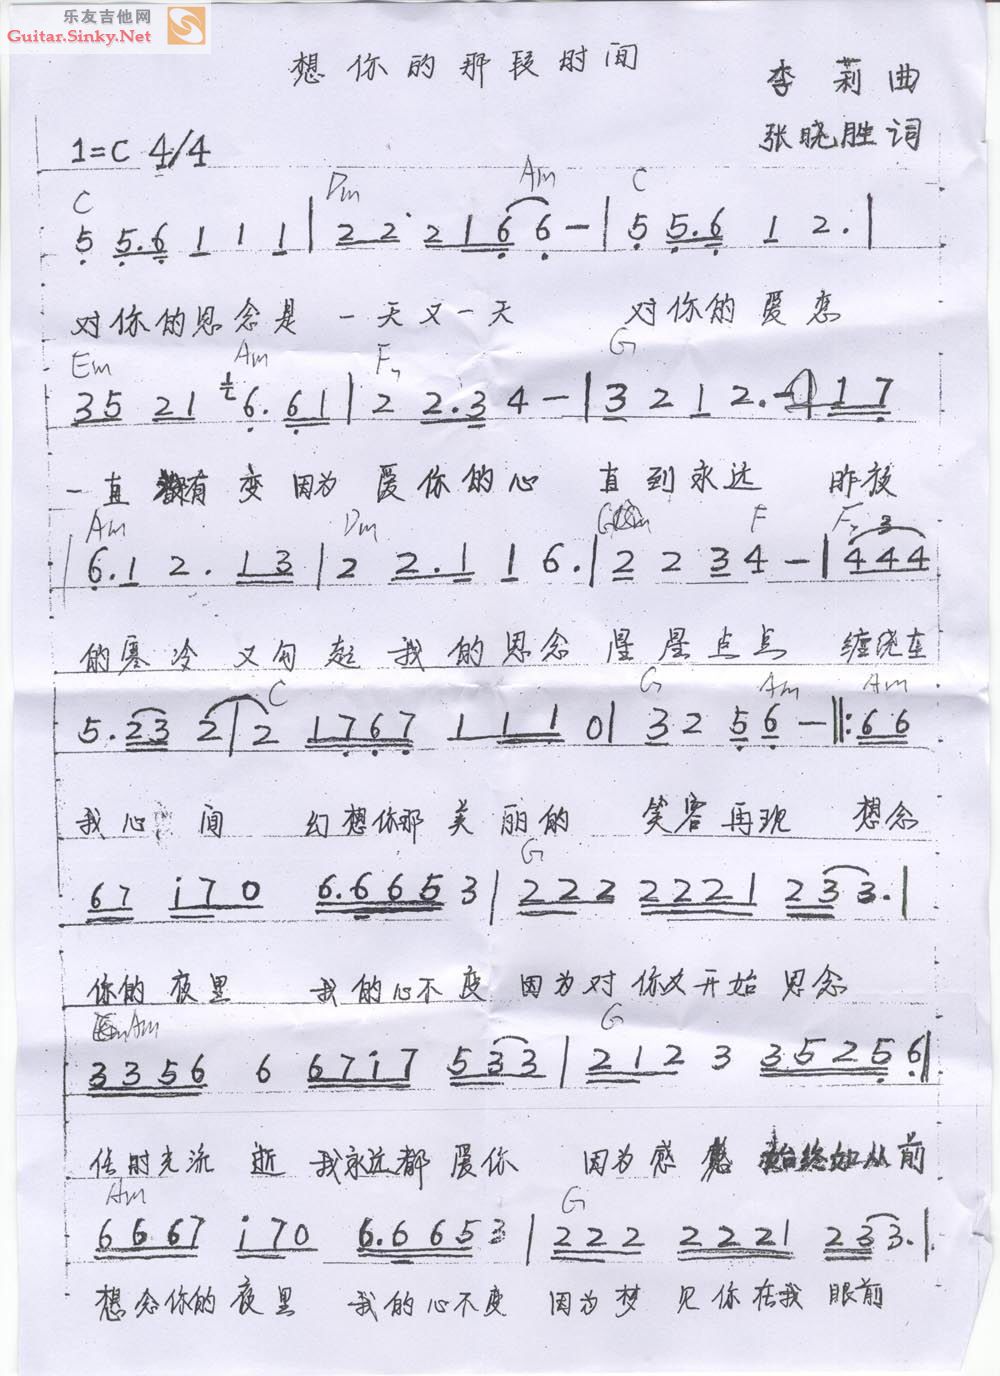 乐友吉他网
Guitar.Sinky.Net
想你的那段时间
李莉曲
张晓胜词
1=C 4/4
C Dm Am C
5 5.6 1 1 1 | 2 2 2 1 6 6 - | 5 5.6 1 2. |
对你的思念是 一天又一天 对你的爱恋
Em Am F G
3 5 2 1 6. 6 1 | 2 2.3 4 - | 3 2 1 2. - 1 7
一直没有变 因为爱你的心 直到永远 昨夜
Am Dm F F 3
6. 1 2. 1 3 | 2 2.1 1 6. | 2 2 3 4 - | 4 4 4
的寒冷 又勾起我的思念 星星点点 缠绕在
C G Am Am
5. 2 3 2 | 2 1 7 6 7 1 1 1 0 | 3 2 5 6 - ‖: 6 6
我心间 幻想你那美丽的 笑容再现 想念
G
6 7 i 7 0 6. 6 6 5 3 | 2 2 2 2 2 2 1 2 3 3. |
你的夜里 我的心不变 因为对你又开始思念
Am G
3 3 5 6 6 6 7 i 7 5 3 3 | 2 1 2 3 3 5 2 5 6 ‖
任时光流逝 我永远都爱你 因为感 始终如从前
Am G
6 6 6 7 i 7 0 6. 6 6 5 3 | 2 2 2 2 2 2 1 2 3 3. |
想念你的夜里 我的心不变 因为梦见你在我眼前